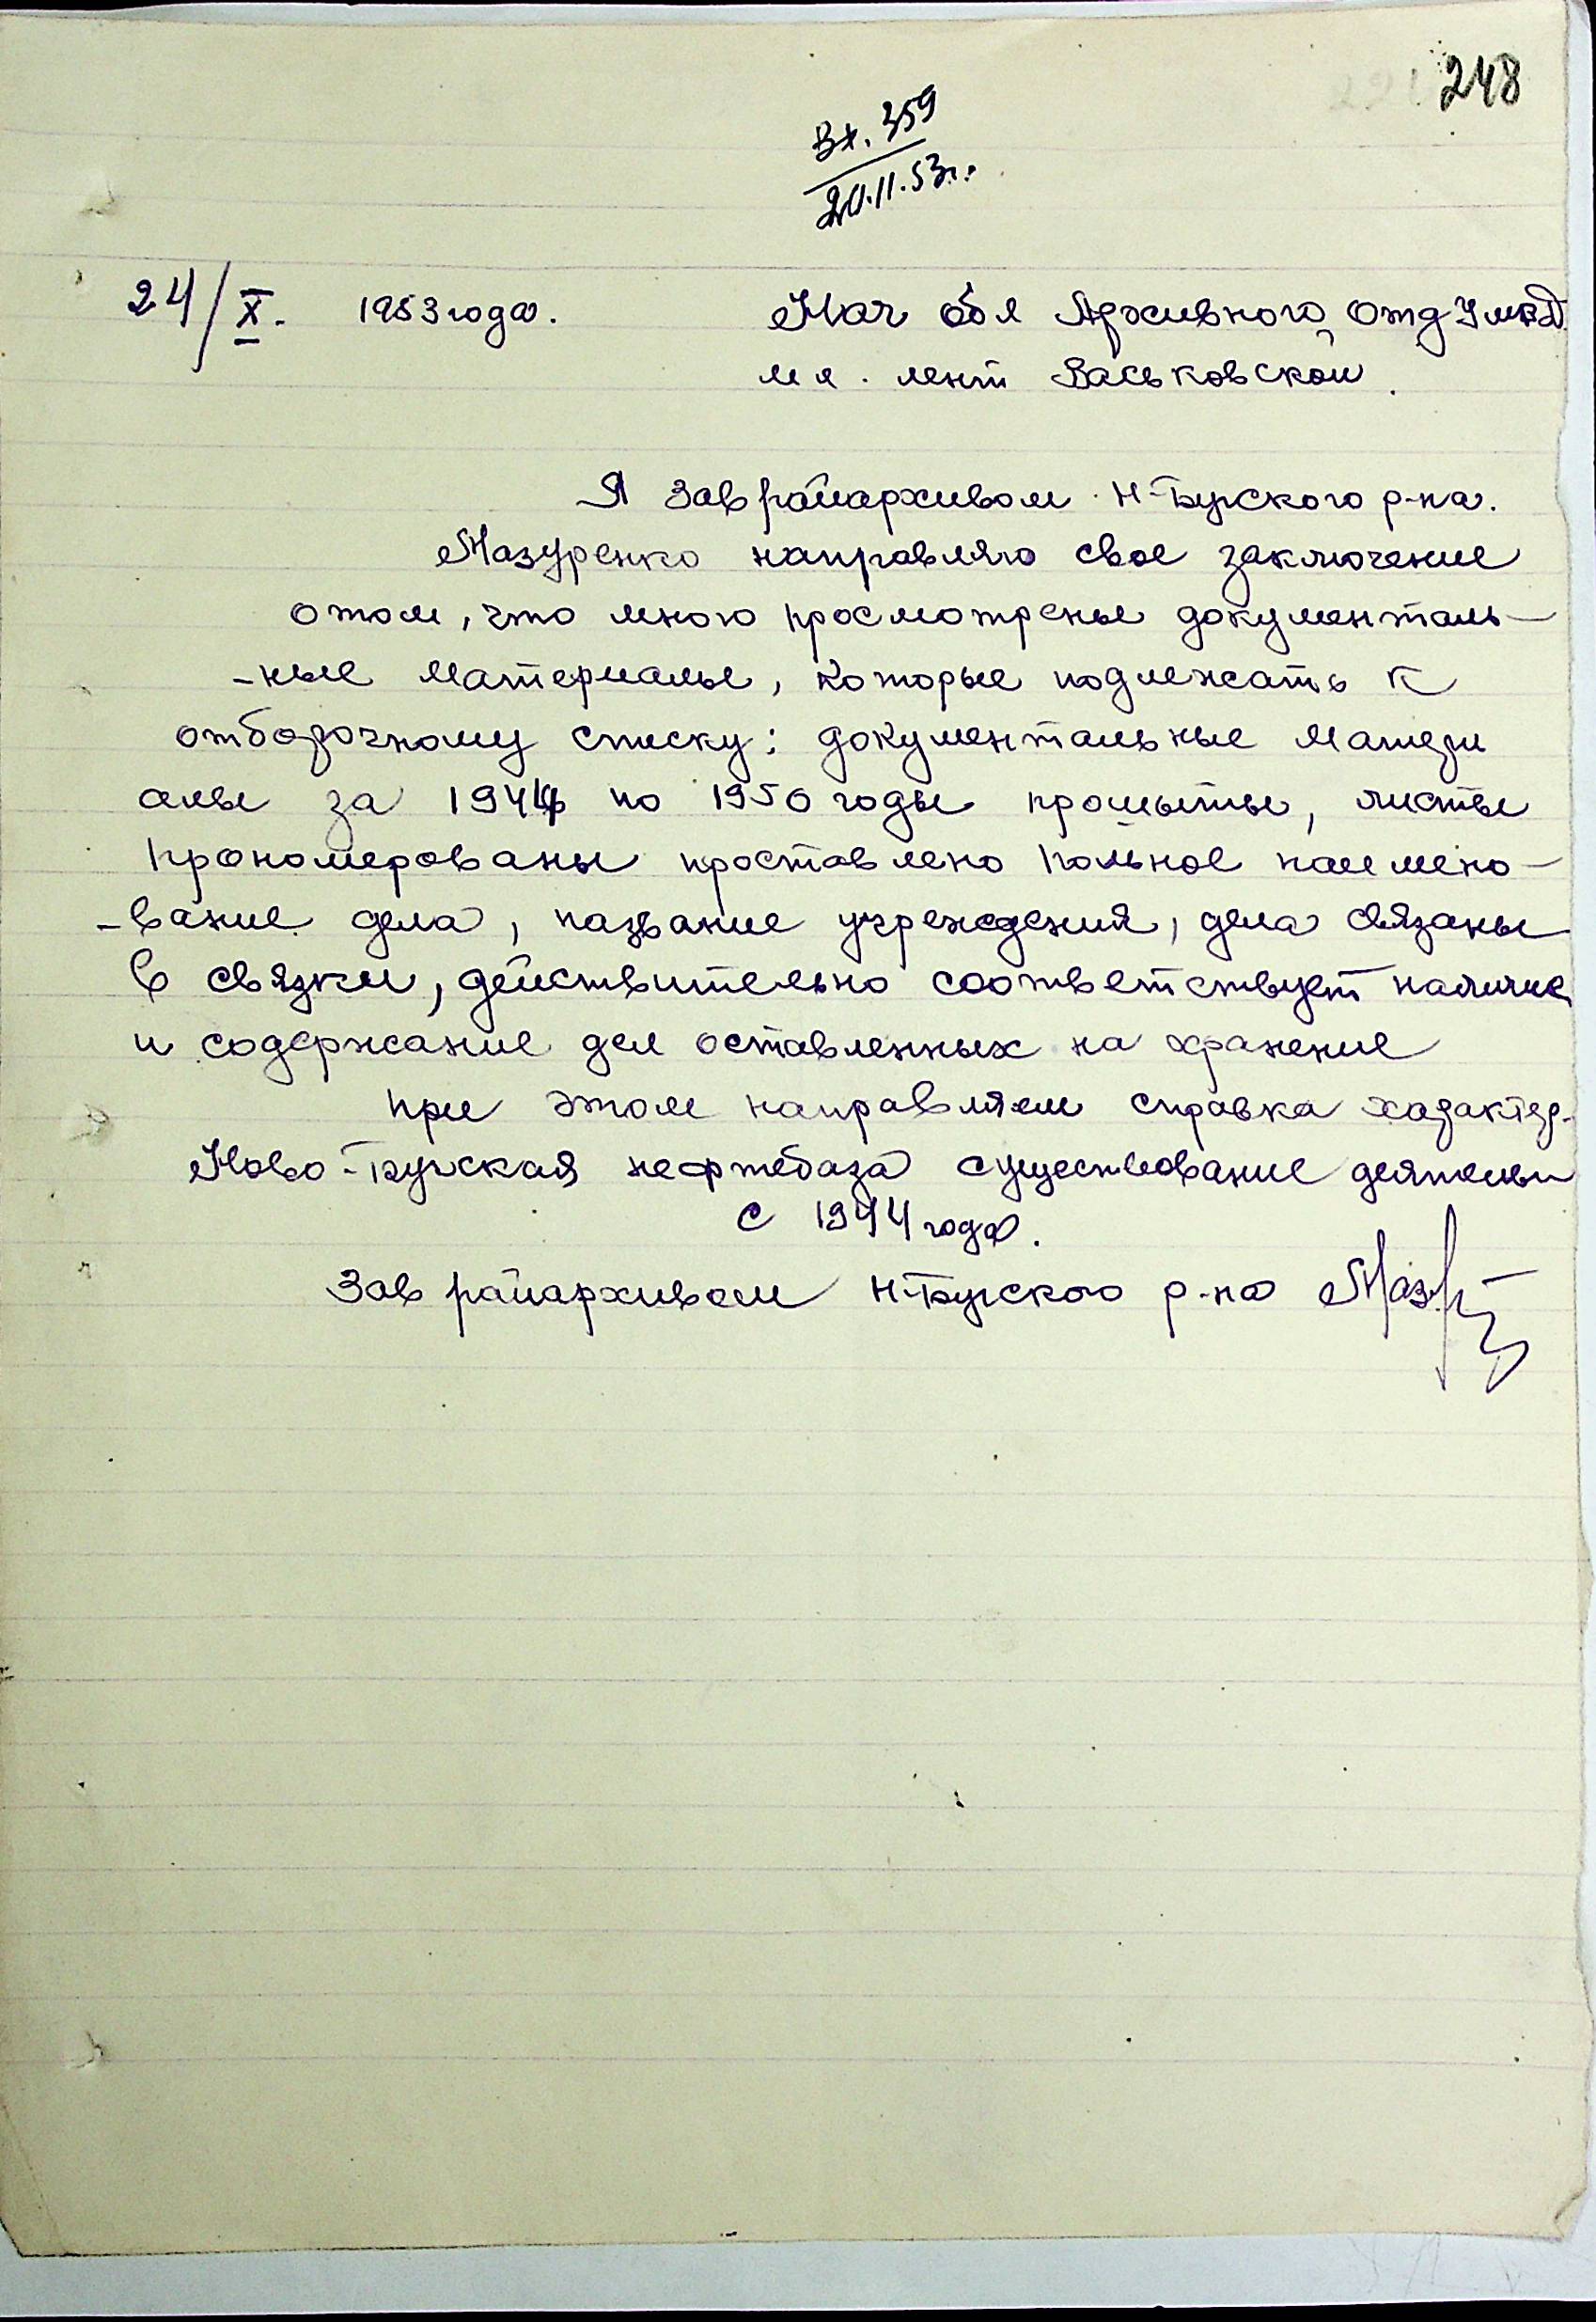 248
Вх. 359
20.11.53г.
24/X. 1953 года.
Нач обл Архивного отд УМВД
мл. лент Васьковской.
Я Зав райархивом Н-Бугского р-на.
Мазуренко направляю свое заключение
о том, что мною просмотрены документаль-
-ные материалы, которые подлежать к
отборочному списку: документальные матери
алы за 1944 по 1950 годы прошыты, листы
прономерованы проставлено полное наимено-
-вание дела, название учреждения, дела связаны
в связки, действительно соответствует наличие
и содержание дел оставленных на хранение
при этом направляем справка характер.
Ново-Бугская нефтебаза существование деятельн
с 1944 года.
Зав райархивом Н-Бугского р-на Маз